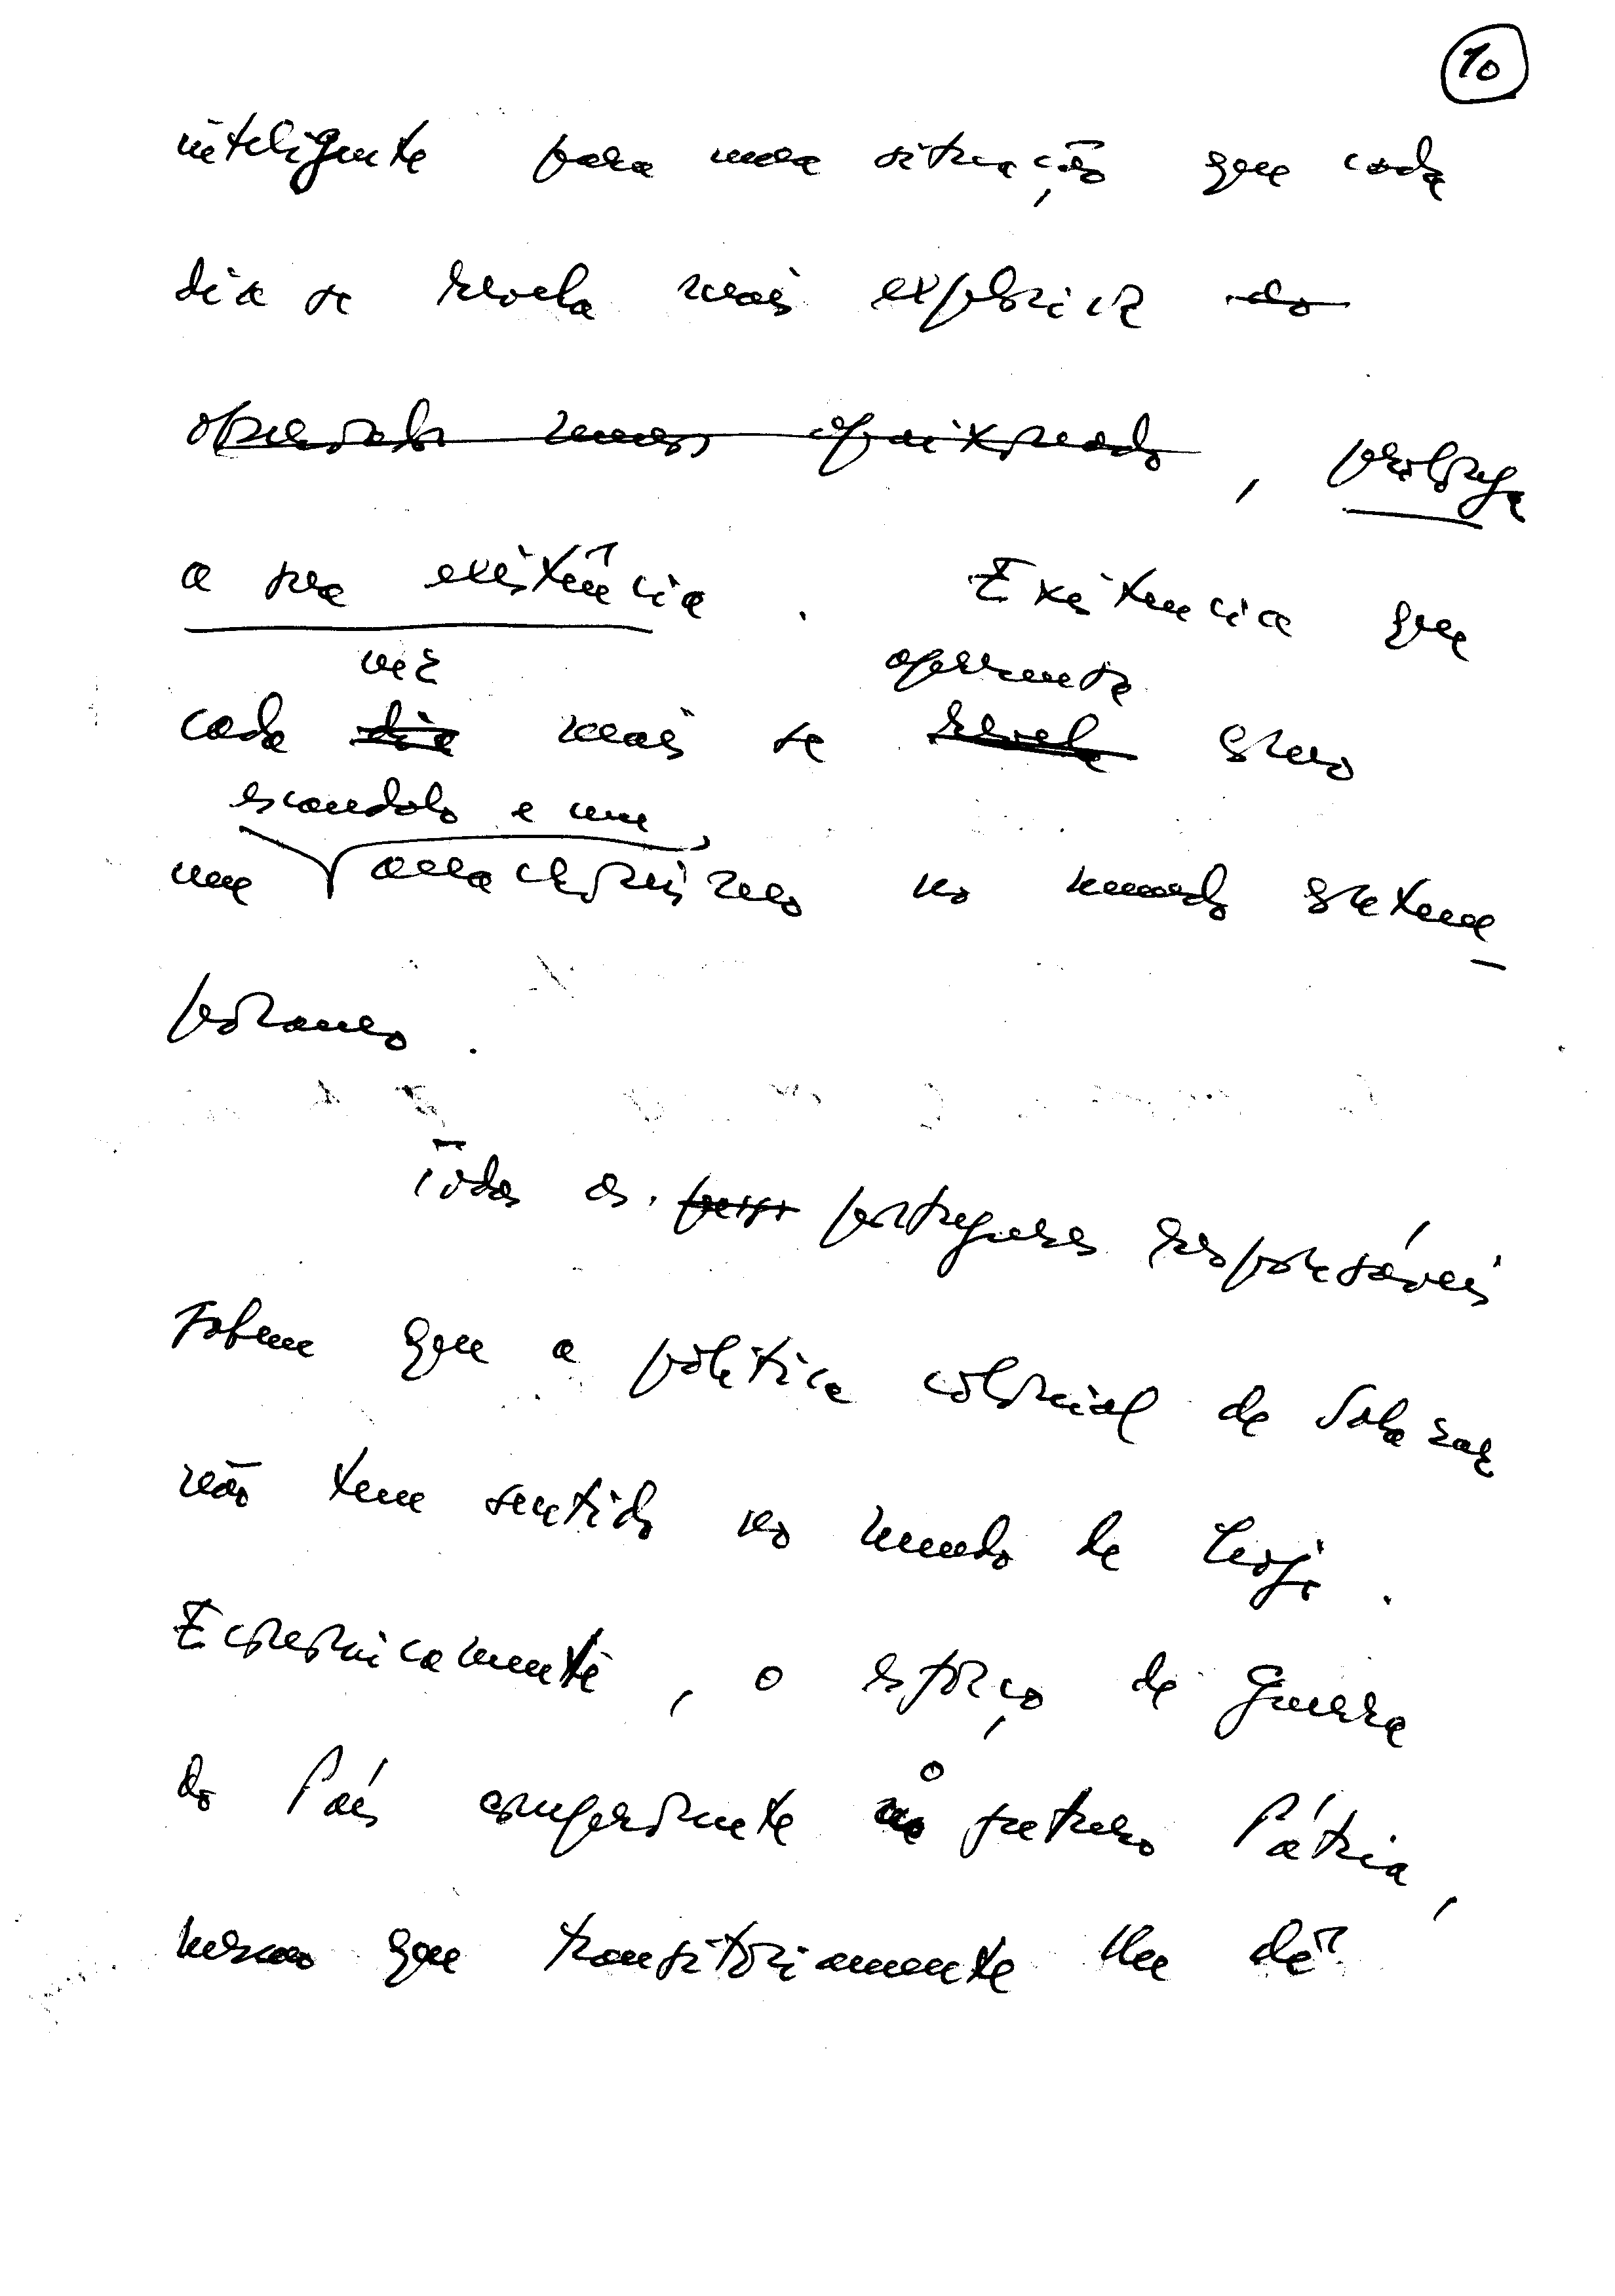 10
inteligente para uma situação que cada
dia se revela mais explosiva ao
observador menos apaixonado, prolonga
a sua existência. Existencia que
vez apresenta
cada dia mais se revela como
escandalo e um
um anachronismo no mundo contem-
poraneo.
Todos os portugueses responsáveis
sabem que a politica colonial de Salazar
não tem sentido no mundo de hoje.
Economicamente, o esforço de guerra
do País compromete o futuro Pátria,
mesmo que transitóriamente lhe dê